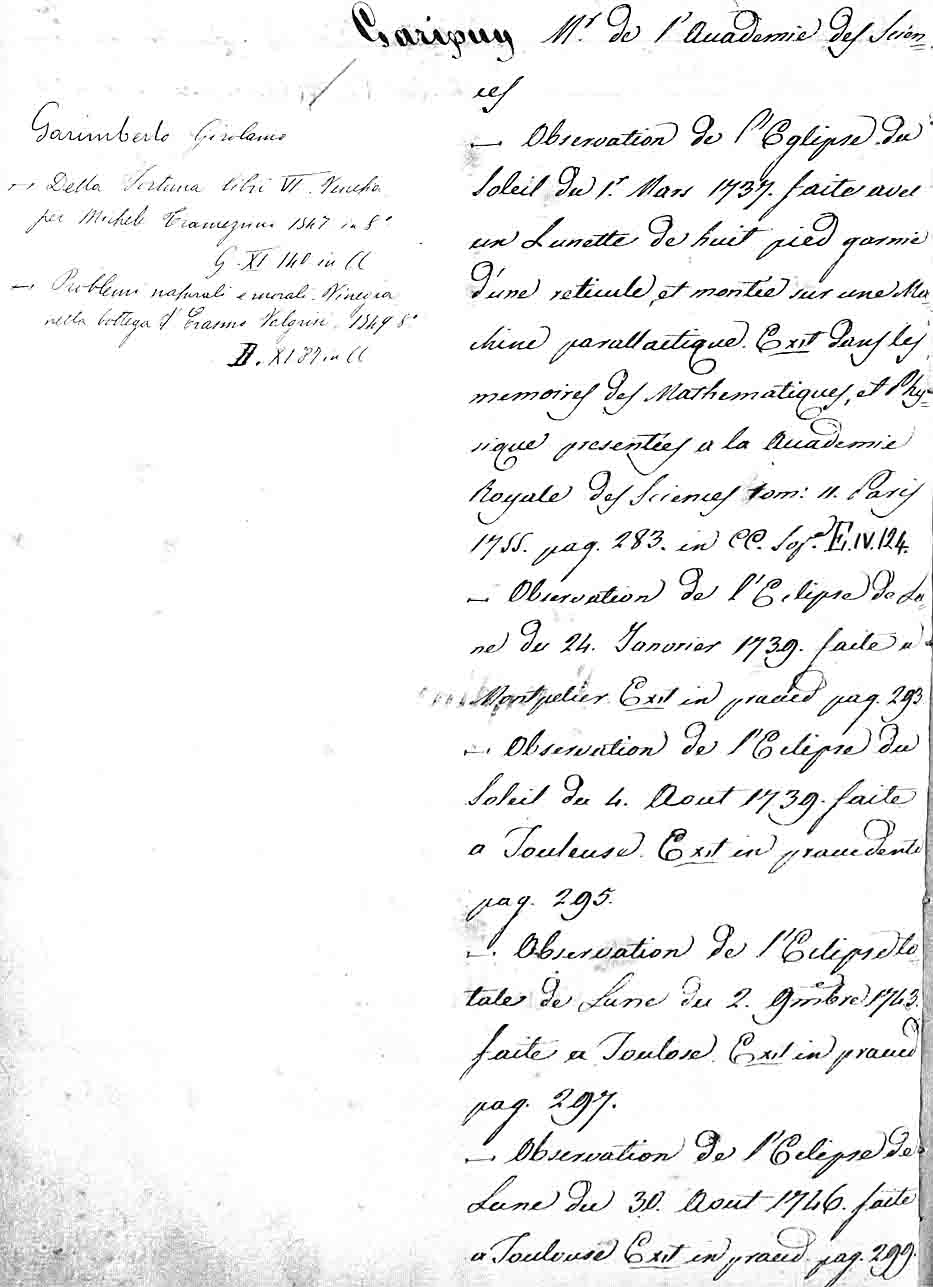 Garipuy Mr. de l'Academie des Scien=
ces
Garimberto Girolamo
— Della Fortuna libri VI. Venezia
per Michele Tramezzino 1547 in 8°
G. XI 140 in CC
— Problemi naturali e morali. Vinegia
nella bottega d'Erasmo Valgrisi. 1549 8°
D. XI 87 in CC
— Observation de l'Eglipse du
Soleil du 1.r Mars 1737. faite avec
un Lunette de huit pied garnie
d'une reticule, et montée sur une Ma=
chine parallactique. Exit dans les
memoires des Mathematiques, et Phy=
sique presentées a la Academie
Royale des Sciences tom: II. Paris
1755. pag. 283. in CC. E.IV.124.
— Observation de l'Eclipse de Lu=
ne du 24. Janvrier 1739. faite a
Montpelier. Exit in praeced pag. 293
— Observation de l'Eclipse du
Soleil du 4. Aout 1739. faite
a Touleuse. Exit in praecedente
pag. 295.
— Observation de l'Eclipse to
tale de Lune du 2. 9mbre 1743.
faite a Toulose. Exit in praeced
pag. 297.
— Observation de l'Eclipse de
Lune du 30. Aout 1746. faite
a Toulouse Exit in praeced. pag. 299.